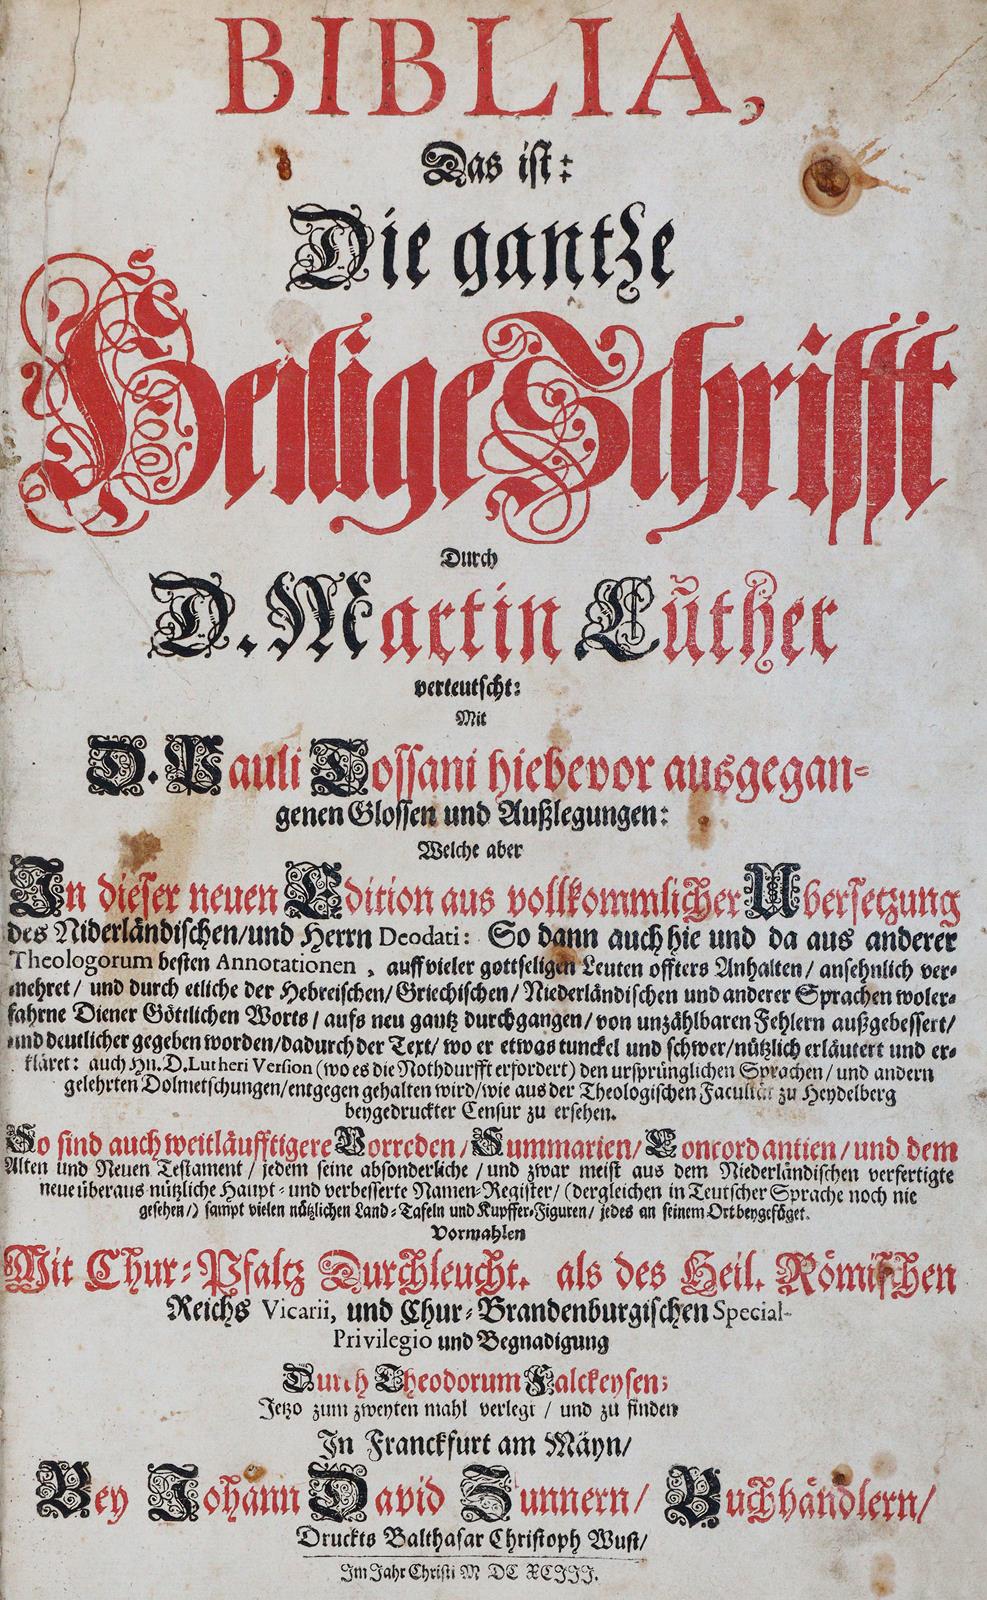 BIBLIA,
Das ist:
Die gantze
Heilige Schrifft
Durch
D. Martin Lũther
verteutscht:
Mit
D. Pauli Tossani hiebevor ausgegan-
genen Glossen und Außlegungen:
Welche aber
In dieser neuen Edition aus vollkommlicher Ubersetzung
des Niderländischen/und Herrn Deodati: So dann auch hie und da aus anderer
Theologorum besten Annotationen, auff vieler gottseligen Leuten öffters Anhalten/ ansehnlich ver-
mehret/ und durch etliche der Hebreischen/Griechischen/ Niederländischen und anderer Sprachen woler-
fahrne Diener Göttlichen Worts/ aufs neu gantz durchgangen/ von unzählbaren Fehlern außgebessert/
und deutlicher gegeben worden/dadurch der Text/ wo er etwas tunckel und schwer/nützlich erläutert und er-
kläret: auch Hn. D. Lutheri Version (wo es die Nothdurfft erfordert) den ursprünglichen Sprachen/ und andern
gelehrten Dolmetschungen/entgegen gehalten wird/wie aus der Theologischen Facultät zu Heydelberg
beygedruckter Censur zu ersehen.
So sind auch weitläufftigere Vorreden/ Summarien/ Concordantien/ und dem
Alten und Neuen Testament/ jedem seine absonderliche/ und zwar meist aus dem Niederländischen verfertigte
neue überaus nützliche Haupt- und verbesserte Namen-Register/ (dergleichen in Teutscher Sprache noch nie
gesehen/) sampt vielen nützlichen Land-Tafeln und Kupffer-Figuren/ jedes an seinem Ort beygefüget.
Vormahlen
Mit Chur-Pfaltz Durchleucht. als des Heil. Römischen
Reichs Vicarii, und Chur-Brandenburgischen Special-
Privilegio und Begnadigung
Durch Theodorum Falckeysen;
Jetzo zum zweyten mahl verlegt/ und zu finden
In Franckfurt am Mäyn/
Bey Johann David Zunnern/ Buchhändlern/
Druckts Balthasar Christoph Wust/
Im Jahr Christi M DC XCIII.